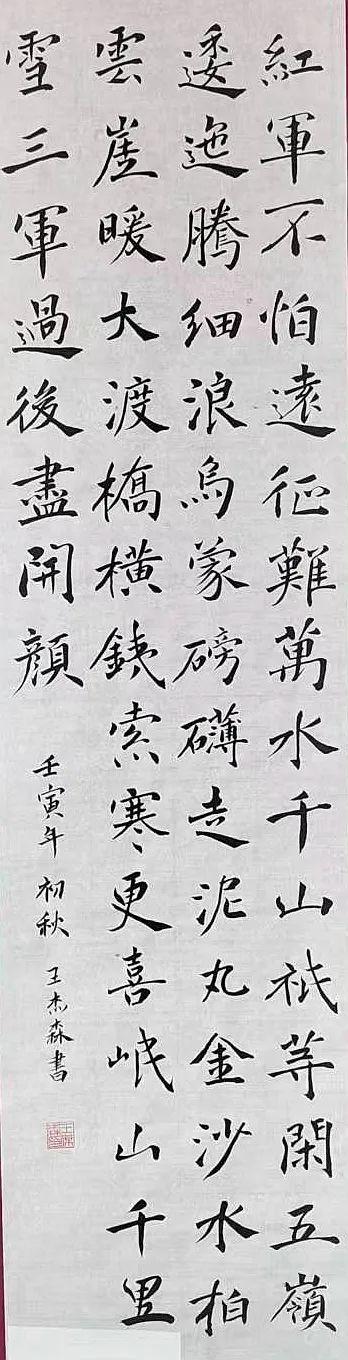 紅軍不怕遠征難萬水千山衹等閑五嶺
逶迤騰細浪烏蒙磅礴走泥丸金沙水柏
雲崖暖大渡橋橫銕索寒更喜岷山千里
雪三軍過後盡開顏
壬寅年初秋王杰森書